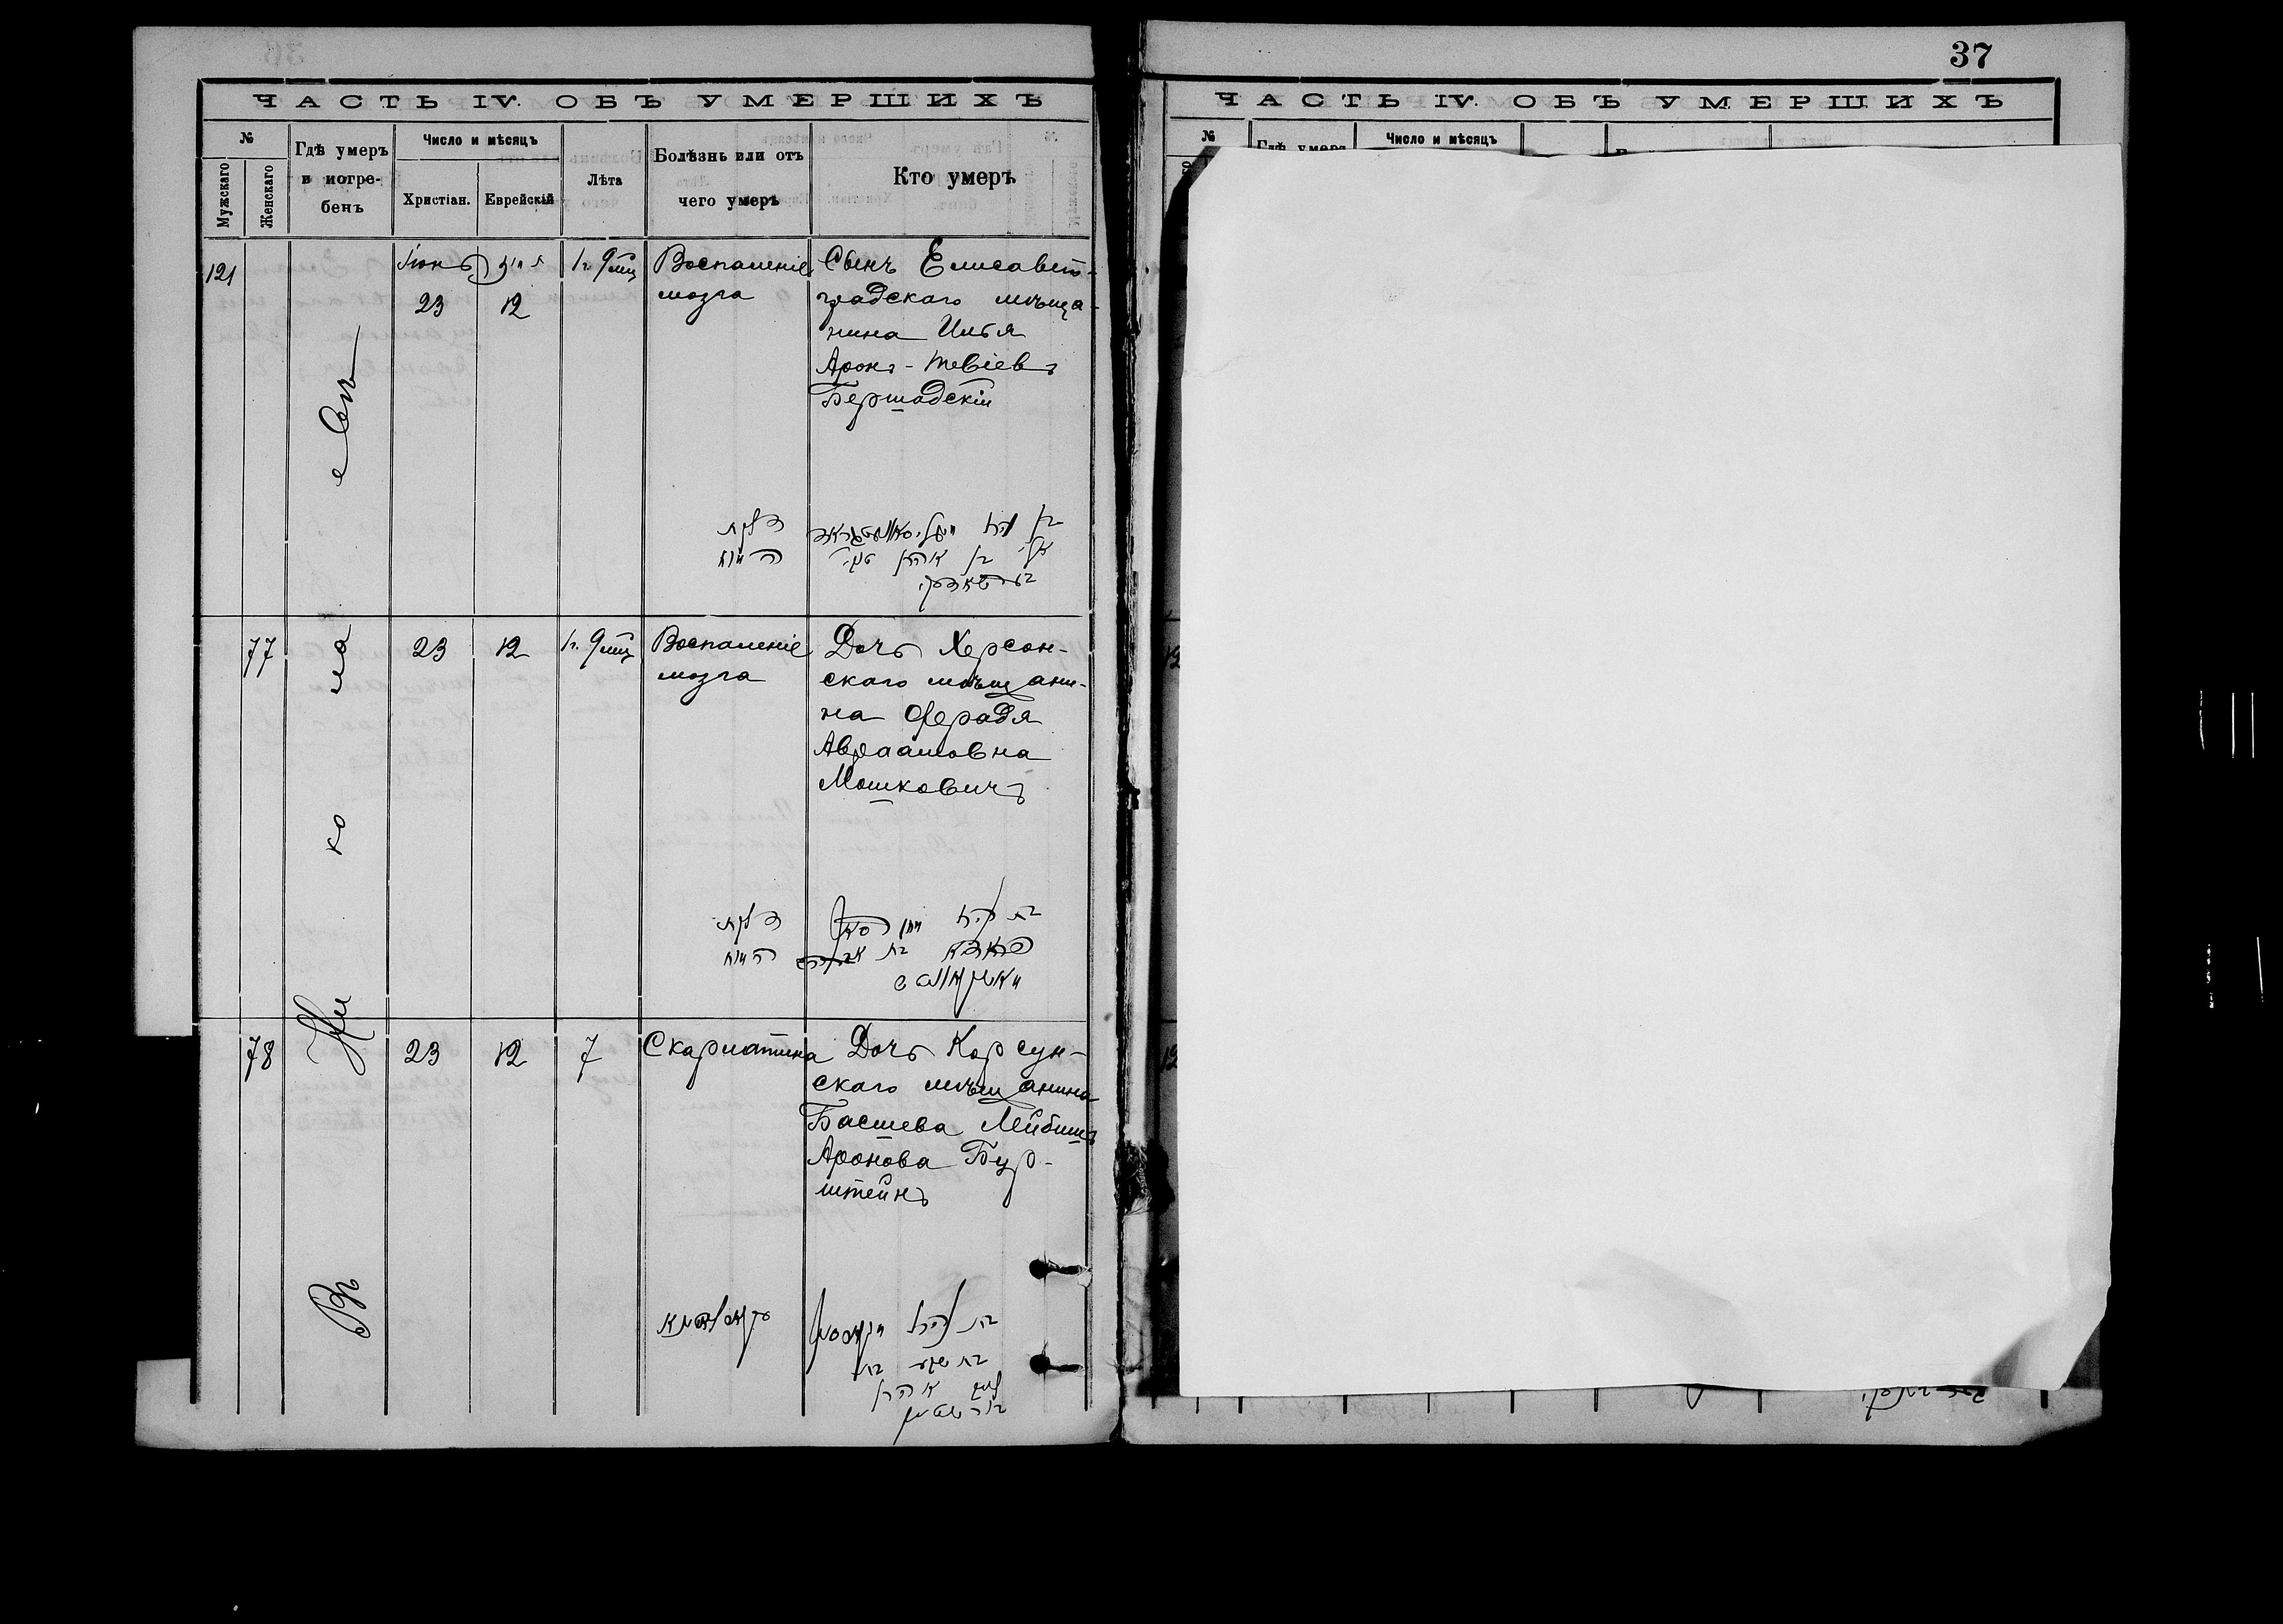 37
ЧАСТЬ IV. ОБЪ УМЕРШИХЪ
№
Мужскаго
Женскаго
Гдѣ умеръ
и погре-
бенъ
Число и мѣсяцъ
Христіан.
Еврейскій
Лѣта
Болѣзнь или отъ
чего умеръ
Кто умеръ
Въ Николаевѣ
121
Іюнь
23
12
1г. 9 мц
Воспаленіе
мозга
Сынъ Елисавет-
градскаго мѣща-
нина Илья
Аронъ-Тевіевъ
Бершадскій
בן
בן אהרן
77
23
12
1г. 9 мц
Воспаленіе
мозга
Дочь Херсон-
скаго мѣщани-
на Фрадя
Авраамовна
Мошковичъ
בת
78
23
12
7
Скарлатина
Дочь Корсун-
скаго мѣщанина
Басшева Лейбишъ
Аронова Бур-
штейнъ
בת
בת שבע בת
אהרן
ЧАСТЬ IV. ОБЪ УМЕРШИХЪ
№
Гдѣ умеръ
Число и мѣсяцъ